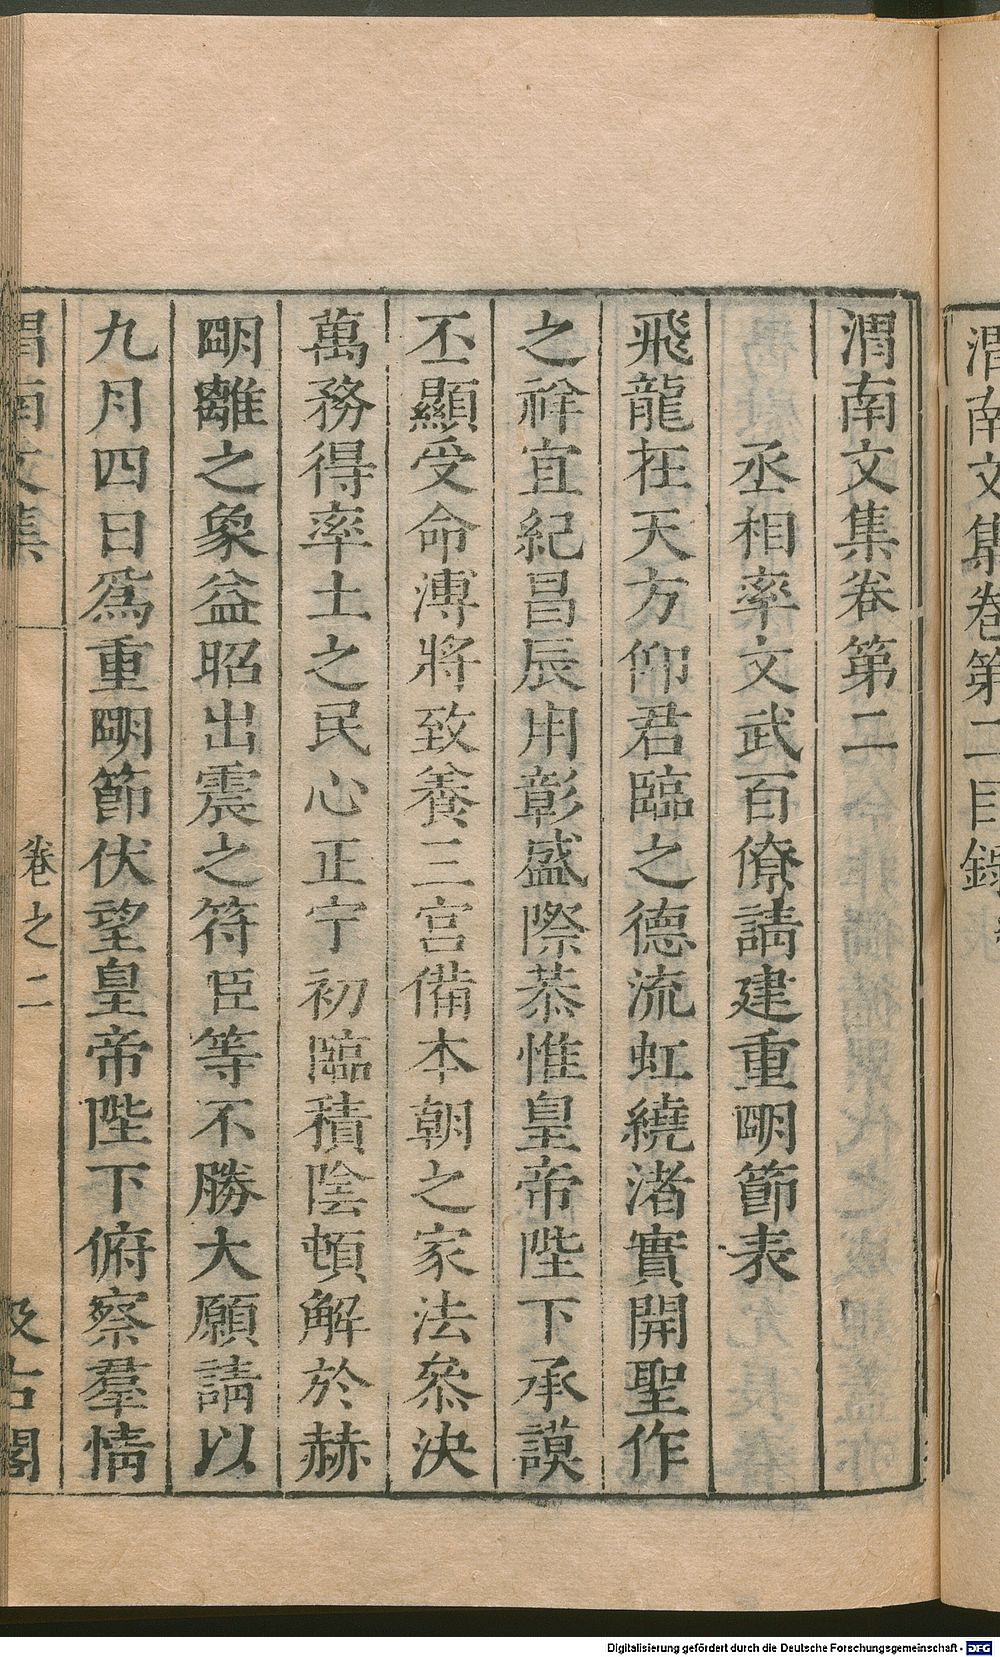 渭南文集卷第二目錄
渭南文集卷第二
丞相率文武百僚請建重明節表
飛龍在天方仰君臨之德流虹繞渚實開聖作
之祥宜紀昌辰用彰盛際恭惟皇帝陛下承謨
丕顯受命溥將致養三宮備本朝之家法叅決
萬務得率土之民心正宁初臨積陰頓解於赫
明離之象益昭出震之符臣等不勝大願請以
九月四日爲重明節伏望皇帝陛下俯察羣情
渭南文集 卷之二 汲古閣
Digitalisierung gefördert durch die Deutsche Forschungsgemeinschaft - DFG